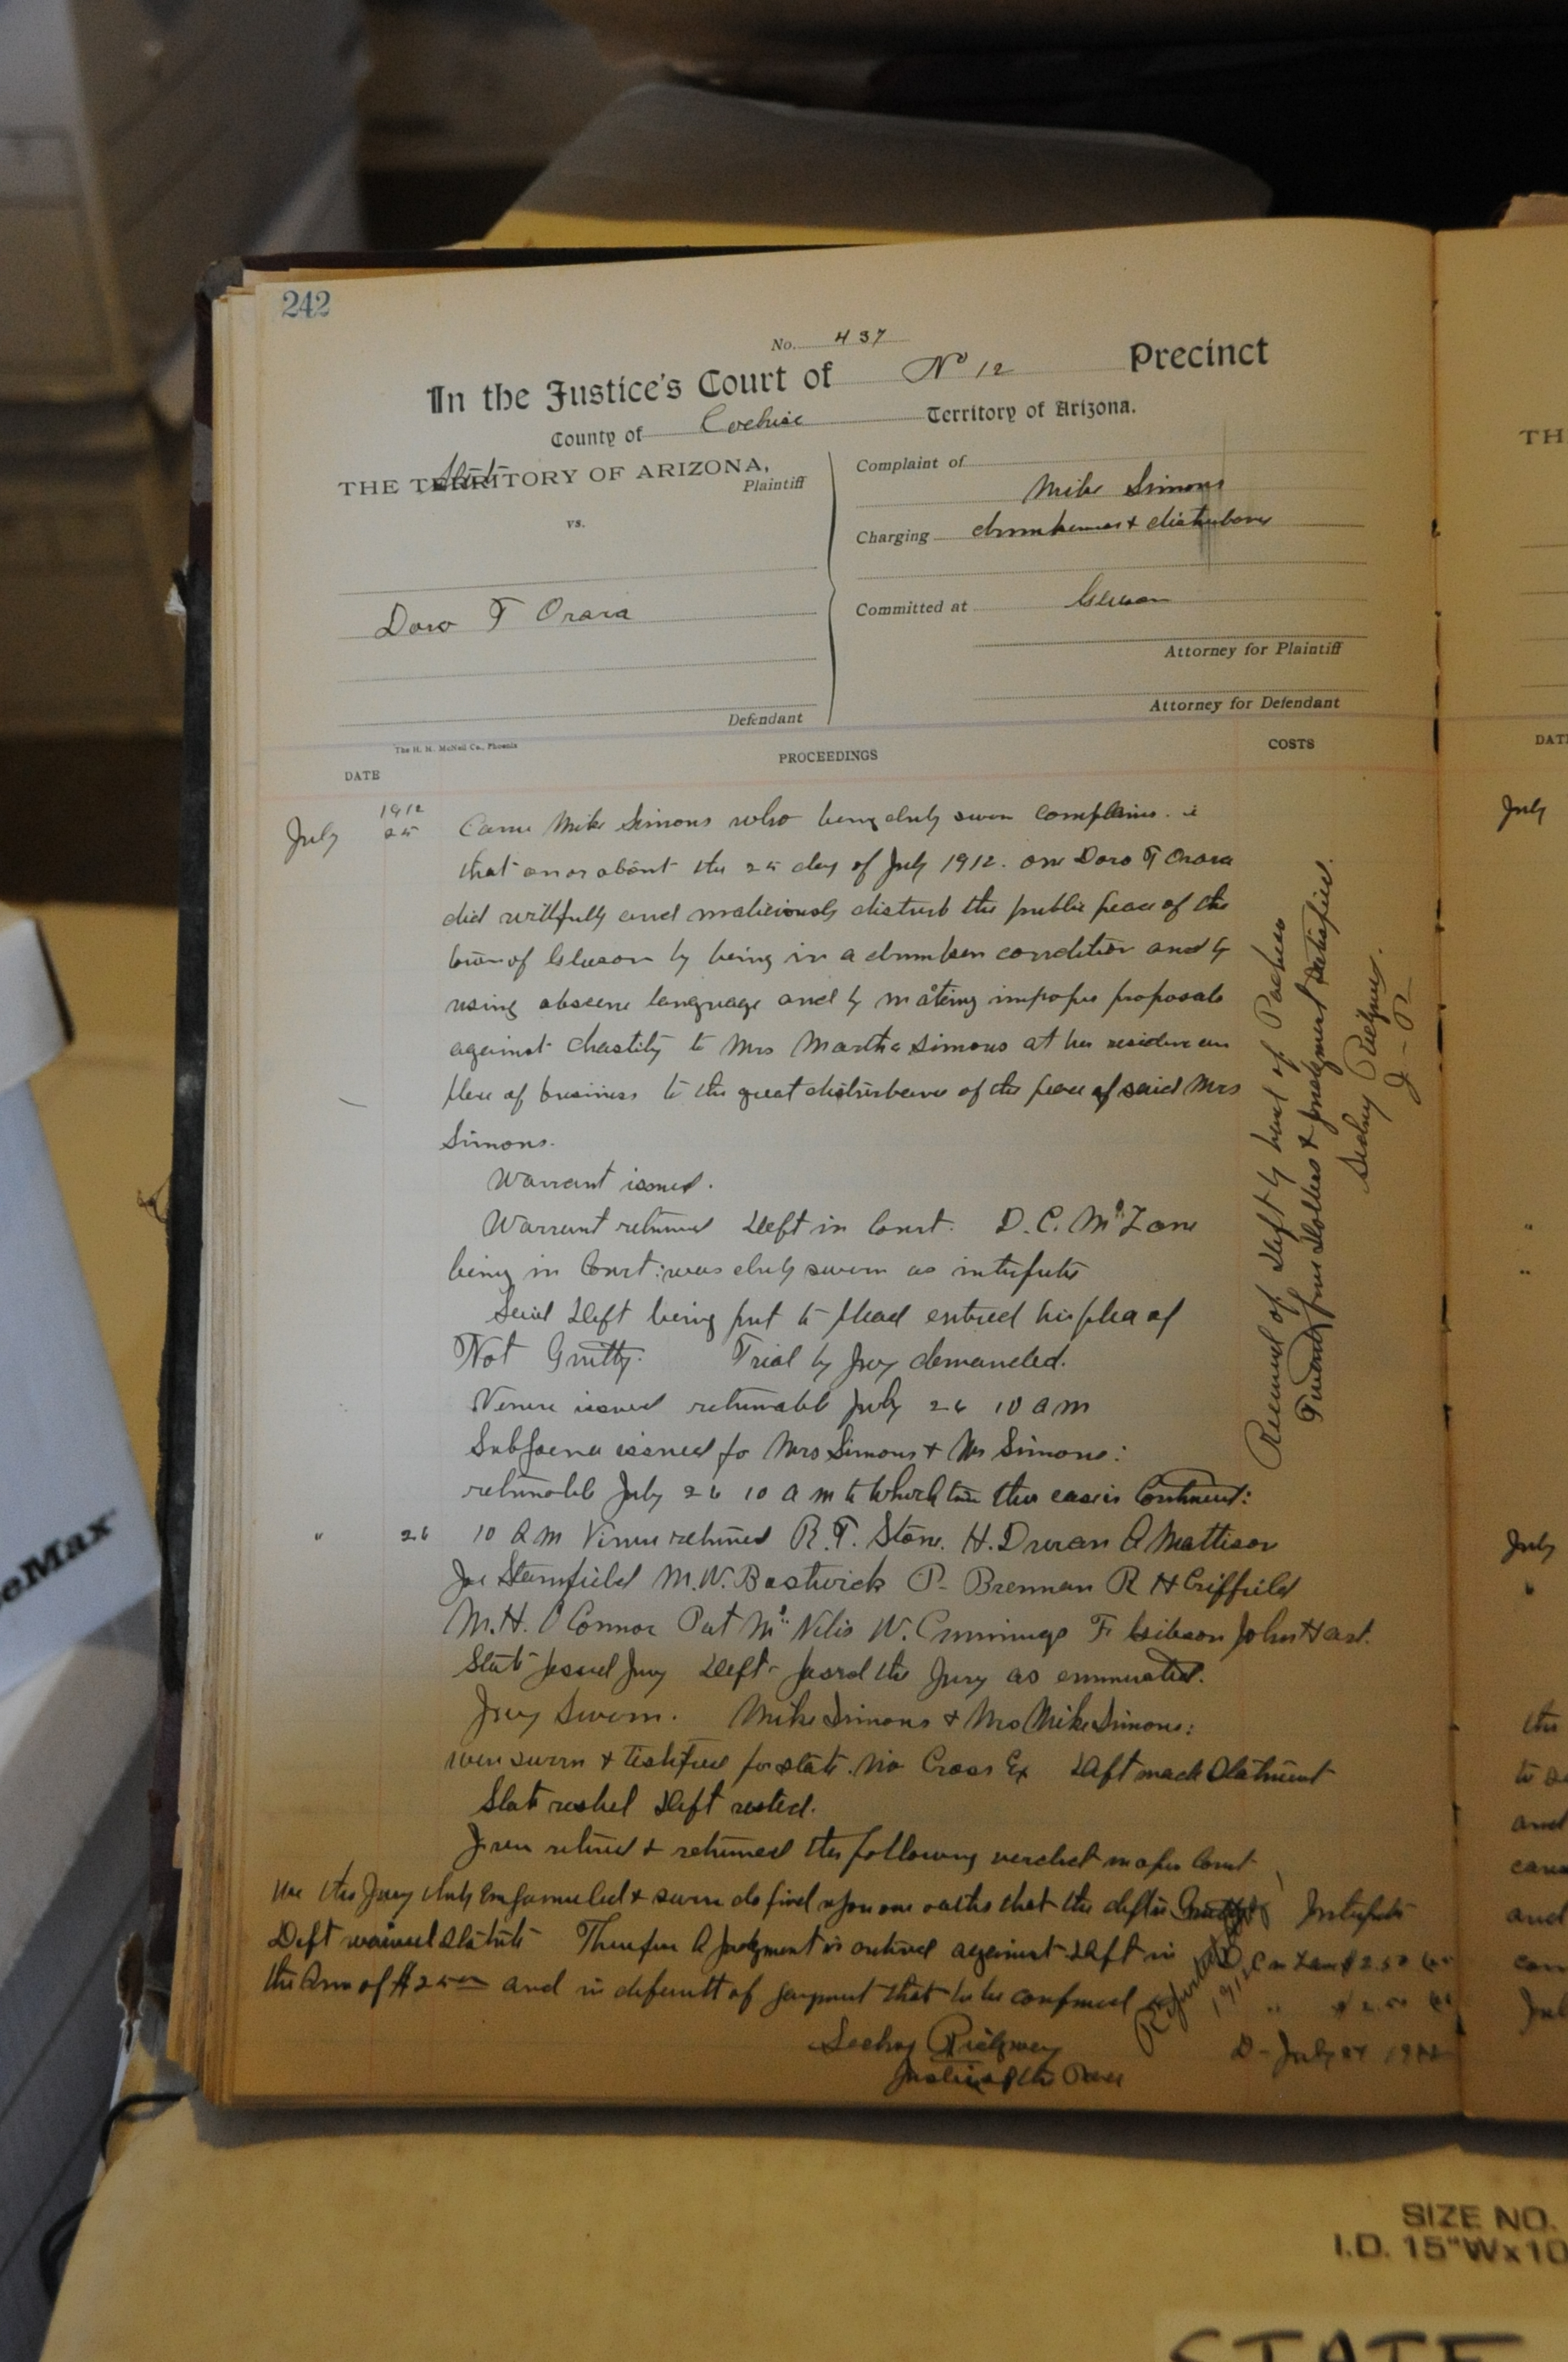 242
No. 437
In the Justice's Court of No 12 Precinct
County of Cochise Territory of Arizona.
State
THE TERRITORY OF ARIZONA,
Plaintiff
vs.
Doro T Orara
Defendant
Complaint of
Mike Simons
Charging drunkenness & disturbance
Committed at Gleeson
Attorney for Plaintiff
Attorney for Defendant
The H. H. McNeil Co., Phoenix
DATE PROCEEDINGS COSTS
1912
July 25 Came Mike Simons who being duly sworn complains.
that on or about the 25 day of July 1912. one Doro T Orara
did willfully and maliciously disturb the public peace of the
town of Gleeson by being in a drunken condition and by
using obscene language and by making improper proposals
against chastity to Mrs Martha Simons at her residence
place of business to the great disturbance of the peace of said Mrs
Simons.
Warrant issued.
Warrant returned Deft in Court. D. C. Mc Zane
being in Court: was duly sworn as interpreter
Said Deft being put to plead entered his plea of
Not Guilty. Trial by Jury demanded.
Venire issued returnable July 26 10 a m
Subpoena issued for Mrs Simons & Mr Simons:
returnable July 26 10 a m to which time this case is Continued:
" 26 10 a m Venire returned R. T. Stone. H. Duran A Mattison
Joe Stamfield M. W. Bostwick P- Brennan R H Criffield
M. H. O Connor Pat Mc Nelis W. Cummings F Gibson John Hart.
State passed Jury Deft passed the Jury as enumerated.
Jury Sworn. Mike Simons & Mrs Mike Simons:
were sworn & testified for state. No Cross Ex Deft made Statement
State rested Deft rested.
Jury retired & returned the following verdict in open Court
We the Jury duly Empanneled & sworn do find upon our oaths that the deft is Guilty
Deft waived Statute Therefore a Judgment is entered against Deft in
the Sum of $25 00 and in default of payment that he be confined
Sidney Ridgway
Justice of the Peace
Interpreter
D C Mc Zane $ 2.50
" $ 2.50
D- July 27 1912
Received of Deft by hand of Pacheco
Twenty five Dollars & judgment Satisfied.
Sidney Ridgway.
J- P
TH
DATE
July
"
"
July
the
and
and
SIZE NO.
I.D. 15"Wx10
STATE
eMax